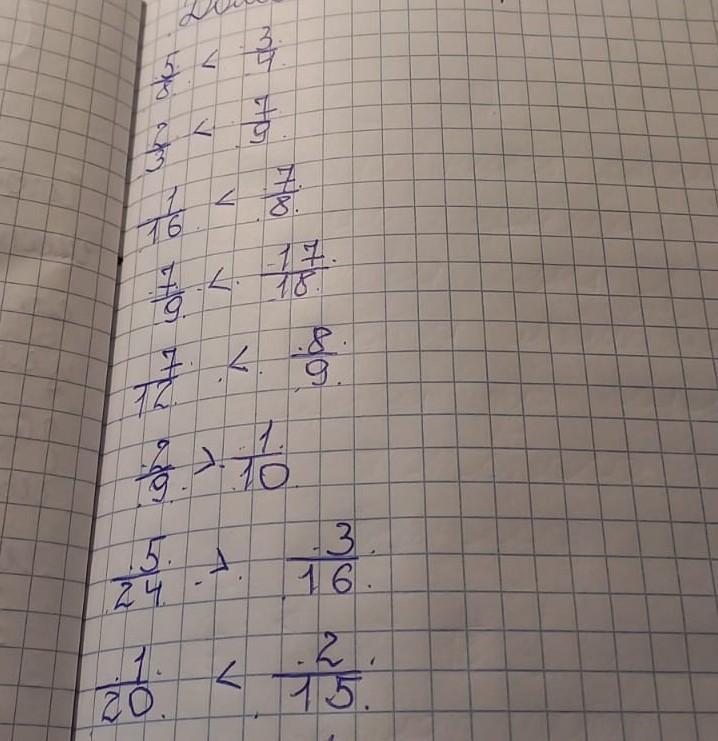 5/8 < 3/4
2/3 < 7/9
1/16 < 7/8
7/9 < 17/18
7/12 < 8/9
2/9 > 1/10
5/24 > 3/16
1/20 < 2/15